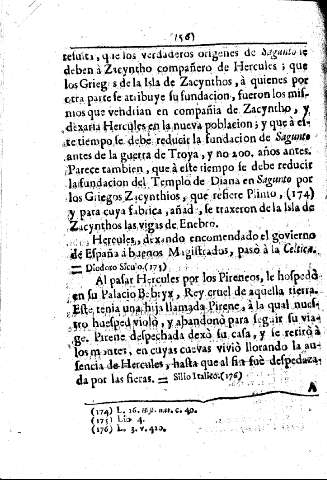 (56)
resulta, que los verdaderos origenes de Sagunto se
deben à Zacyntho compañero de Hercules; que
los Griegos de la Isla de Zacynthos, à quienes por
otra parte se atribuye su fundacion, fueron los mis-
mos que vendrian en compañia de Zacyntho, y
dexaria Hercules en la nueva poblacion; y que à es-
te tiempo se debe reducir la fundacion de Sagunto
antes de la guerra de Troya, y no 200. años antes.
Parece tambien, que à este tiempo se debe reducir
la fundacion del Templo de Diana en Sagunto por
los Griegos Zacynthios, que refiere Plinio, (174)
y para cuya fabrica, añade, se traxeron de la Isla de
Zacynthos las vigas de Enebro.
Hercules, dexando encomendado el govierno
de España à buenos Magistrados, pasò à la Celtica.
= Diodoro Siculo. (175)
Al pasar Hercules por los Pireneos, le hospedò
en su Palacio Bebryx, Rey cruel de aquella tierra.
Este tenia una hija llamada Pirene, à la qual nues-
tro huesped violò, y abandonò para seguir su via-
ge. Pirene despechada dexò su casa, y se retirò à
los montes, en cuyas cuevas viviò llorando la au-
sencia de Hercules, hasta que al fin fuè despedaza-
da por las fieras. = Silio Italico. (176)
A
(174) L. 16. Hist. nat. c. 40.
(175) Lib. 4.
(176) L. 3. v. 420.